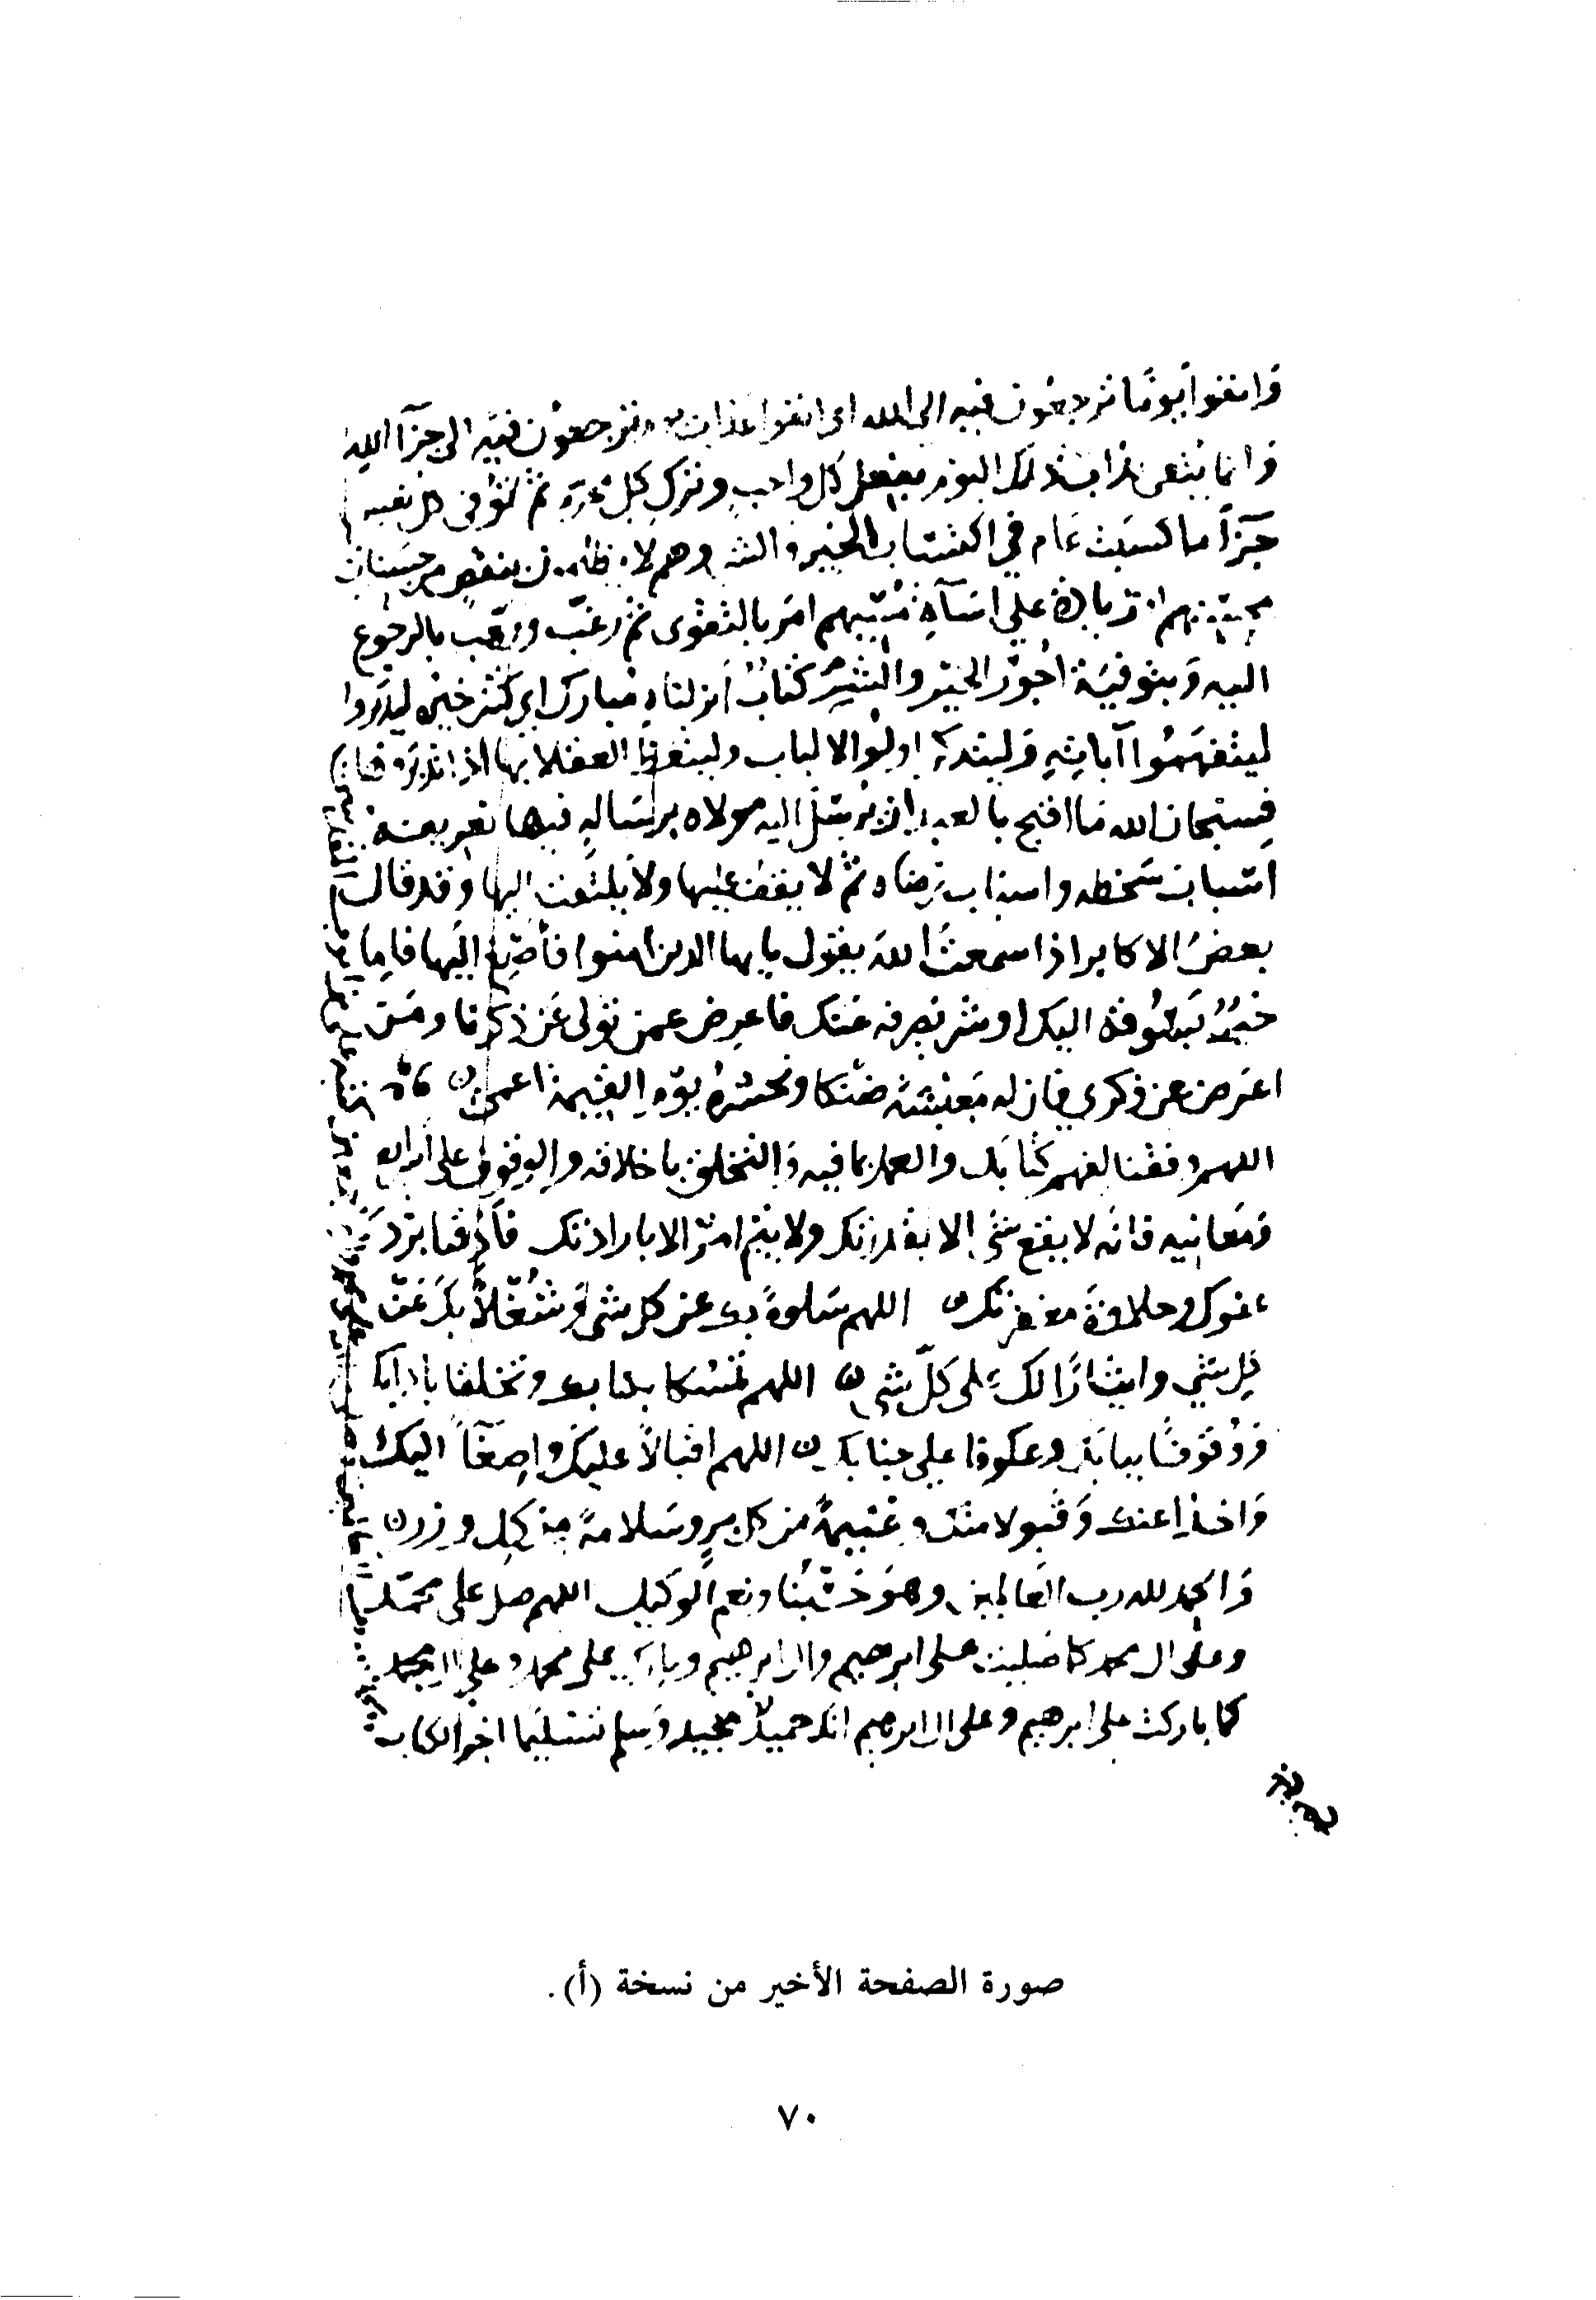 واتقوا يوما ترجعون فيه الى الله اى اتقوا عذاب يوم ترجعون فيه الى جزآ الله
وانما يتقى عذاب ذلك اليوم بفعل كل واجب وترك كل محرم ثم توفى كل نفس
جزآ ما كسبت عام في اكتساب الخير والشر وهم لا يظلمون بنقص من حسنات
محسنهم او زيادة على اسآة مسيهم امر بالتقوى ثم رغب ورهب بالرجوع
اليه وبتوفية اجور الخير والشر كتاب أنزلناه مبارك اي كثير خيره ليدبروا
ليتفهموا آياته وليتذكر اولوا الالباب وليتعظ العقلا بها اذا تدبروها
فسبحان الله ما اقبح بالعبد ان يرسل اليه مولاه برسالة فيها تعريفه
اسباب سخطه واسباب رضاه ثم لا يقف عليها ولا يلتفت اليها وقد قال
بعض الاكابر اذا سمعت الله يقول يا يها الذين امنوا فأصغ اليها فاما
خير يسوقه اليك او شر يصرفه عنك فاعرض عمن تولى عن ذكرنا ومن
اعرض عن ذكري فان له معيشة ضنكا ونحشره يوم القيمة اعمى
اللهم وفقنا لفهم كتابك والعمل بما فيه والتخلق باخلاقه والوقوف على آدابه
ومعانيه فانه لا يقع شى الا بقدرتك ولا يتم امر الا بارادتك فأذقنا برد
عفوك وحلاوة مغفرتك اللهم سلوة بك عن كل شى وشغلا بك عن
كل شي وايثارا لك على كل شى اللهم تمسكا بكتابك وتخلقا بادابك
ووقوفا ببابك وعكوفا على جنابك اللهم اقبالا عليك واصغآ اليك
واخذا عنك وقبولا منك وغنيمة من كل بر وسلامة من كل وزر
والحمد لله رب العالمين وهو حسبنا ونعم الوكيل اللهم صل على محمد
وعلى ال محمد كما صليت على ابرهيم وال ابرهيم وبارك على محمد وعلى ال محمد
كما باركت على ابرهيم وعلى ال ابرهيم انك حميد مجيد وسلم تسليما اخر الكتاب
صورة الصفحة الأخير من نسخة (أ).
٧٠